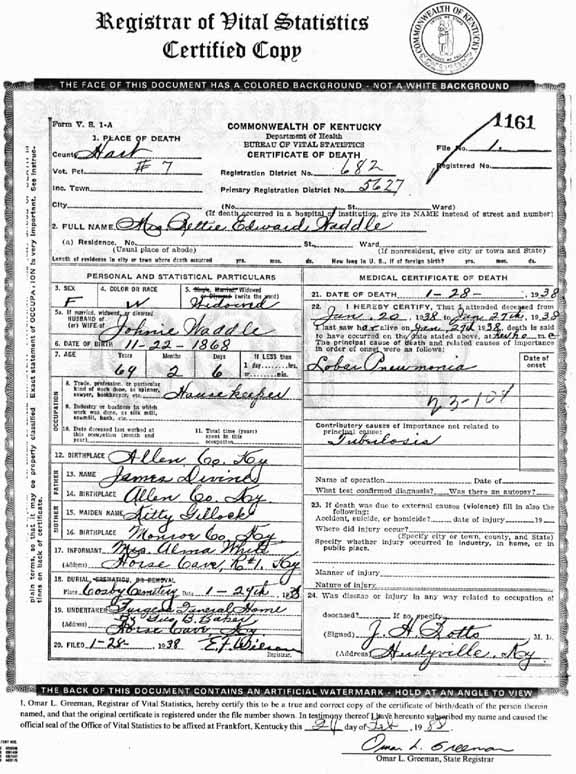 Registrar of Vital Statistics
Certified Copy
COMMONWEALTH OF KENTUCKY
THE FACE OF THIS DOCUMENT HAS A COLORED BACKGROUND - NOT A WHITE BACKGROUND
Form V. S. 1-A
1161
1. PLACE OF DEATH
COMMONWEALTH OF KENTUCKY
Department of Health
BUREAU OF VITAL STATISTICS
CERTIFICATE OF DEATH
File No. 1.
Registered No.
County Hart
Vot. Pct. #7
Registration District No. 682
Inc. Town
Primary Registration District No. 5627
City (No. St., Ward)
(If death occurred in a hospital or institution, give its NAME instead of street and number)
2. FULL NAME Mrs Bettie Edward Waddle
(a) Residence. No. St., Ward
(Usual place of abode) (If nonresident, give city or town and State)
Length of residence in city or town where death occurred yrs. mos. ds. How long in U. S., if of foreign birth? yrs. mos. ds.
PERSONAL AND STATISTICAL PARTICULARS
3. SEX F
4. COLOR OR RACE W
5. Single, Married, Widowed or Divorced (write the word) Widowed
5a. If married, widowed, or divorced
HUSBAND of
(or) WIFE of Johnie Waddle
6. DATE OF BIRTH 11-22-1868
7. AGE Years Months Days If LESS than
69 2 6 1 day hrs.
or min.
OCCUPATION
8. Trade, profession, or particular
kind of work done, as spinner,
sawyer, bookkeeper, etc. Housekeeper
9. Industry or business in which
work was done, as silk mill,
sawmill, bank, etc.
10. Date deceased last worked at
this occupation (month and
year)
11. Total time (years)
spent in this
occupation
12. BIRTHPLACE Allen Co. Ky
FATHER
13. NAME James Divine
14. BIRTHPLACE Allen Co. Ky
MOTHER
15. MAIDEN NAME Kitty Gillock
16. BIRTHPLACE Monroe Co. Ky
17. INFORMANT Mrs. Alma White
(Address) Horse Cave, R#1, Ky
18. BURIAL, CREMATION, OR REMOVAL
Place Cosby Cemetery Date 1-29th, 1938
19. UNDERTAKER Funeral Home
B. Baker
(Address) Horse Cave Ky
20. FILED 1-28- 1938 E. F. Wilson
Registrar.
MEDICAL CERTIFICATE OF DEATH
21. DATE OF DEATH 1-28- 1938
22. I HEREBY CERTIFY, That I attended deceased from
Jan. 20 1938 to Jan. 27th, 1938
I last saw her alive on Jan. 27th 1938, death is said
to have occurred on the date stated above, at
The principal cause of death and related causes of importance
in order of onset were as follows:
Date of
onset
Lobar Pneumonia
23-108
Contributory causes of importance not related to
principal cause:
Tubulosis
Name of operation Date of
What test confirmed diagnosis? Was there an autopsy?
23. If death was due to external causes (violence) fill in also the
following:
Accident, suicide, or homicide? date of injury 19
Where did injury occur?
(Specify city or town, county, and State)
Specify whether injury occurred in industry, in home, or in
public place.
Manner of injury
Nature of injury
24. Was disease or injury in any way related to occupation of
deceased? If so, specify
(Signed) J. H. Botts M. D.
(Address) Hardyville, Ky.
THE BACK OF THIS DOCUMENT CONTAINS AN ARTIFICIAL WATERMARK - HOLD AT AN ANGLE TO VIEW
I, Omar L. Greeman, Registrar of Vital Statistics, hereby certify this to be a true and correct copy of the certificate of birth/death of the person therein
named, and that the original certificate is registered under the file number shown. In testimony thereof I have hereunto subscribed my name and caused the
official seal of the Office of Vital Statistics to be affixed at Frankfort, Kentucky this 24 day of Feb, 1988
Omar L. Greeman
Omar L. Greeman, State Registrar